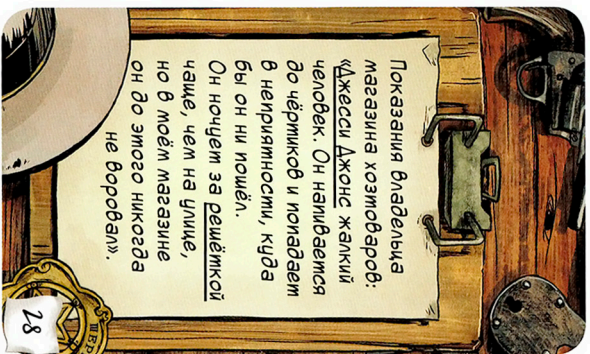 Показания владельца
магазина хозтоваров:
«Джесси Джонс жалкий
человек. Он напивается
до чёртиков и попадает
в неприятности, куда
бы он ни пошёл.
Он ночует за решёткой
чаще, чем на улице,
но в моём магазине
он до этого никогда
не воровал».
28